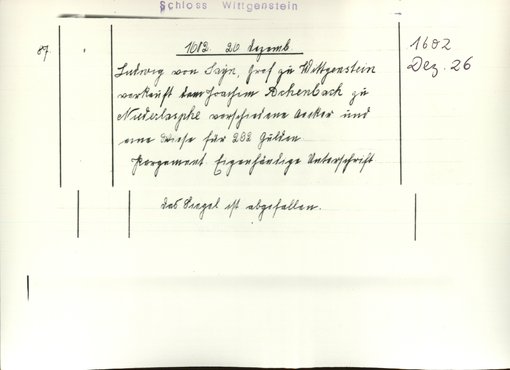 Schloss Wittgenstein
87
1602. 26 Dezemb.
1602
Dez. 26
Ludwig von Sayn, Graf zu Wittgenstein
verkauft dem Joachim Achenbach zu
Niederlasphe verschiedene Aecker und
eine Wiese für 282 Gulden.
Pergament Eigenhändige Unterschrift
das Siegel ist abgefallen.